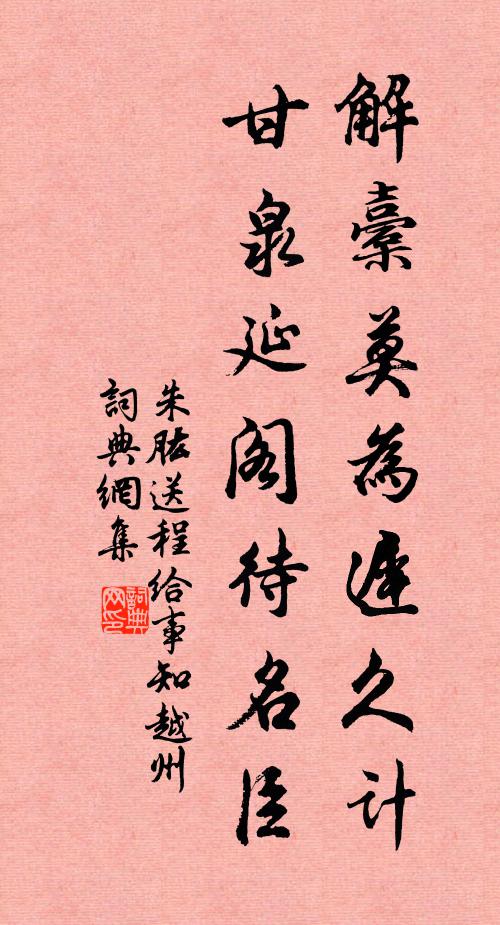 解橐莫為遲久計
甘泉延閣待名臣
朱肱送程給事知越州
詞典網集
詞典
网印